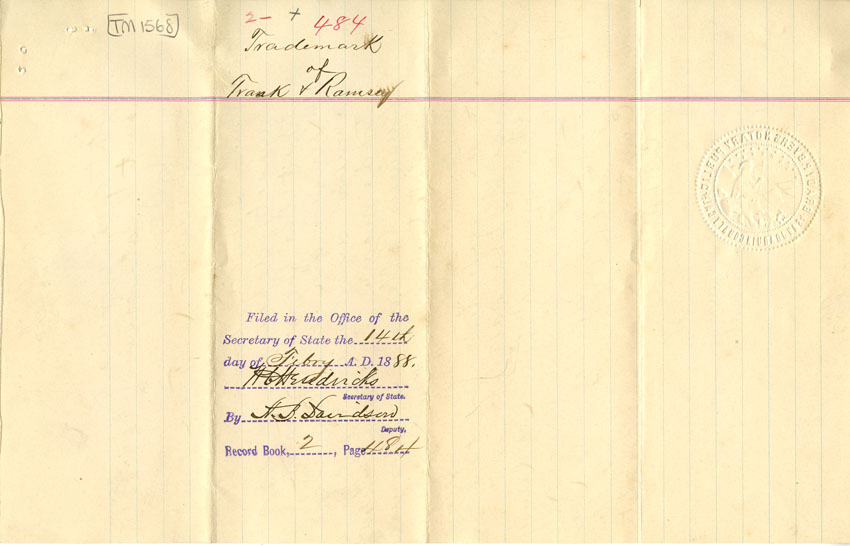 [TM 1568]
2 - + 484
Trademark
of
Frank & Ramsey
Filed in the Office of the
Secretary of State the 14th
day of Febry A. D. 1888.
W C Hendricks
Secretary of State.
By Davidson
Deputy.
Record Book, 2, Page 484